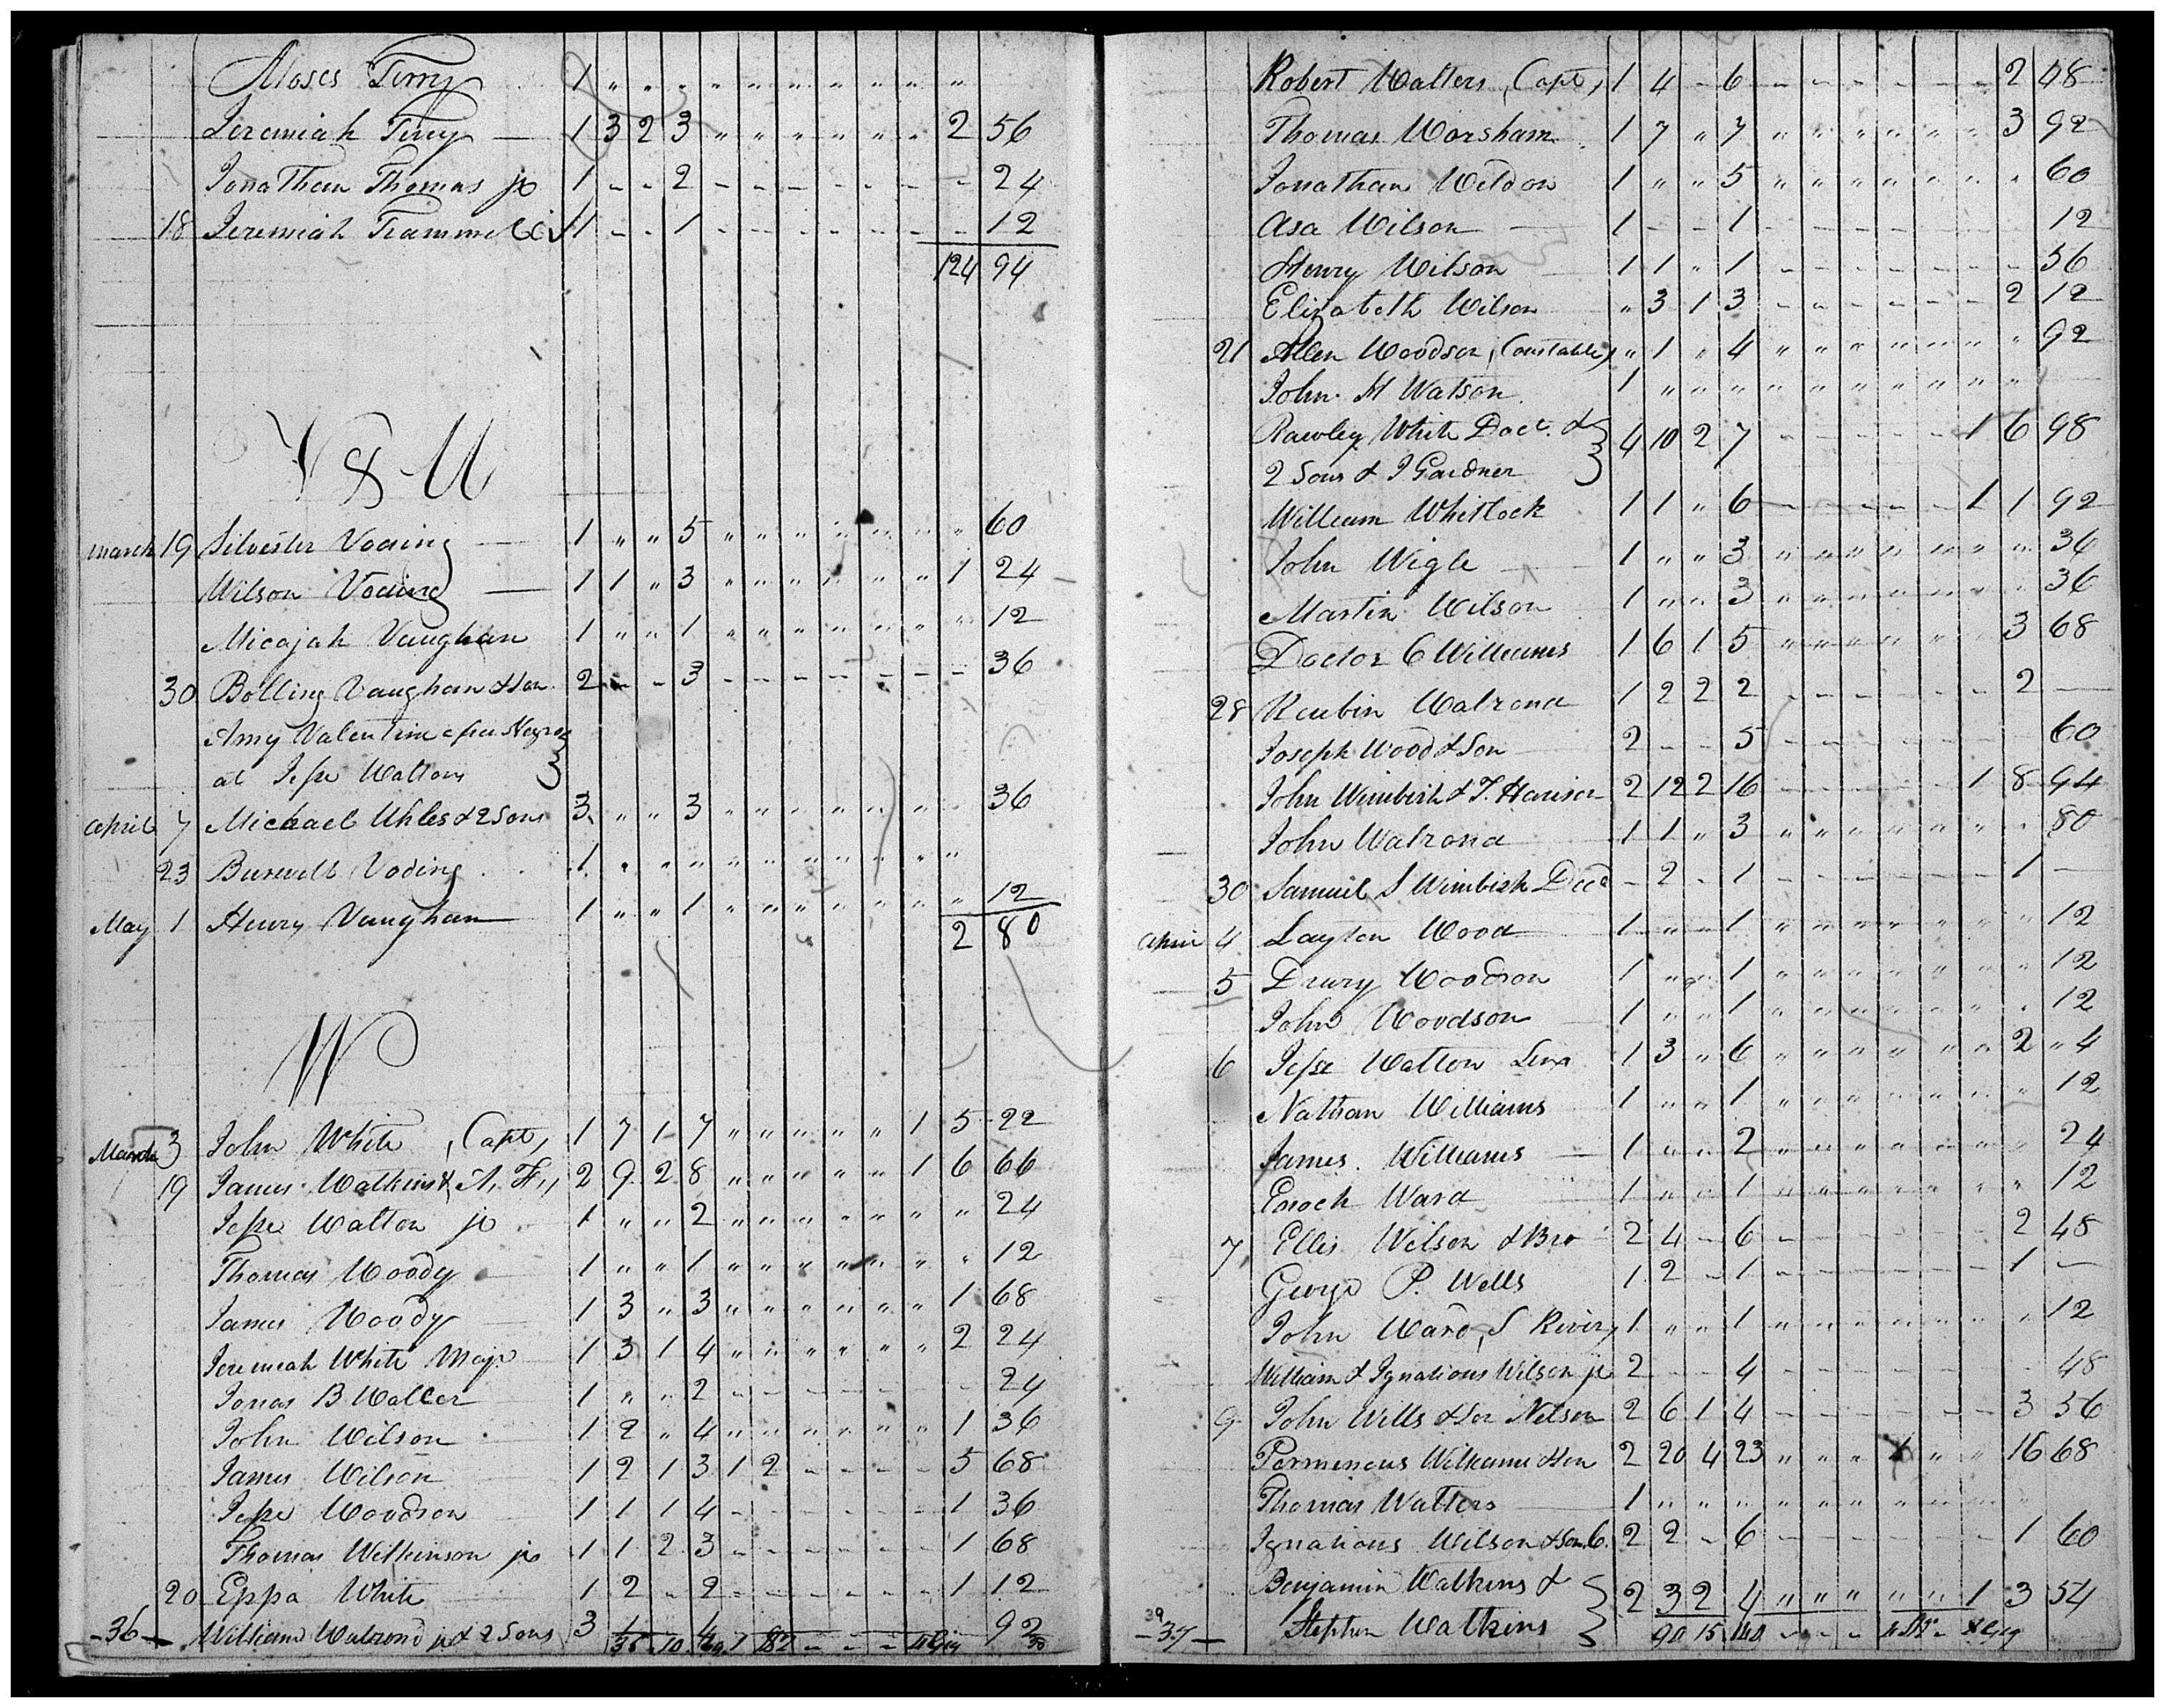 Moses Terry 1 " " " " " " " " " "
Jeremiah Terry 1 3 2 3 " " " " " " 2 56
Jonathan Thomas jr 1 - - 2 - - - - - - - 24
18 Jeremiah Trammell 1 - - 1 - - - - - - - 12
124 94
V & U
March 19 Silvester Voding 1 " " 5 " " " " " " " 60
Wilson Voding 1 1 " 3 " " " " " " 1 24
Micajah Vaughan 1 " " 1 " " " " " " " 12
30 Bolling Vaughan & Son 2 - - 3 - - - - - - - 36
Amy Valentine a free Negroe
at Jesse Waltons
April 7 Michael Uhles & 2 Sons 3 " " 3 " " " " " " " 36
23 Burwell Voding 1 " " " " " " " " " "
May 1 Henry Vaughan 1 " " 1 " " " " " " " 12
2 80
W
March 3 John White, Capt, 1 7 1 7 " " " " " 1 5 22
19 James Watkins & A. H,, 2 9 2 8 " " " " " 1 6 66
Jesse Walton jr 1 " " 2 " " " " " " " 24
Thomas Woody 1 " " 1 " " " " " " " 12
James Woody 1 3 " 3 " " " " " " 1 68
Jeremiah White Majr 1 3 1 4 " " " " " " 2 24
Jonas B Waller 1 " " 2 - - - - - - - 24
John Wilson 1 2 " 4 " " " " " " 1 36
James Wilson 1 2 1 3 1 2 - - - - 5 68
Jesse Woodson 1 1 1 4 - - - - - - 1 36
Thomas Wilkinson jr 1 1 2 3 - - - - - - 1 68
20 Eppa White 1 2 - 2 - - - - - - 1 12
-36- William Walrond jr & 2 Sons 3 1 4 92
Robert Walters, Capt, 1 4 - 6 - - - - - - 2 48
Thomas Worsham 1 7 " 7 " " " " " " 3 92
Jonathan Weldon 1 " " 5 " " " " " " " 60
Asa Wilson 1 - - 1 - - - - - - 12
Henry Wilson 1 1 " 1 - - - - - - - 56
Elizabeth Wilson " 3 1 3 - - - - - - 2 12
21 Allen Woodson, Constable, " 1 " 4 " " " " " " " 92
John H Watson 1 " " " " " " " " " "
Rawley White Doct. &
2 Sons & J Gardner 4 10 2 7 - - - - - 1 6 98
William Whitlock 1 1 " 6 - - - - - 1 1 92
John Wigle 1 " " 3 " " " " " " " 36
Martin Wilson 1 " " 3 " " " " " " " 36
Doctor C Williams 1 6 1 5 " " " " " " 3 68
28 Reubin Walrond 1 2 2 2 - - - - - - 2 -
Joseph Wood & Son 2 - - 5 - - - - - - 60
John Wimbish & T. Harison 2 12 2 16 - - - - - 1 8 94
John Walrond 1 1 " 3 " " " " " " " 80
30 Samuel S Wimbish Decd - 2 - 1 - - - - - - 1 -
April 4 Layton Wood 1 " " 1 " " " " " " " 12
5 Drury Woodson 1 " " 1 " " " " " " " 12
John Woodson 1 " " 1 " " " " " " " 12
6 Jesse Walton Senr 1 3 " 6 " " " " " " 2 " 4
Nathan Williams 1 " " 1 " " " " " " " 12
James Williams 1 " " 2 " " " " " " " 24
Enoch Ward 1 " " 1 " " " " " " " 12
7 Ellis Wilson & Bro 2 4 - 6 - - - - - - 2 48
George P. Wells 1 2 - 1 - - - - - - 1 -
John Ward, S River, 1 " " 1 " " " " " " " 12
William & Ignatious Wilson jr 2 - - 4 - - - - - - - 48
9 John Wells & Son Nelson 2 6 1 4 - - - - - - 3 56
Permeneus Williams & Son 2 20 4 23 " " " 1 " " 16 68
Thomas Walters 1 " " " " " " " " " "
Ignatious Wilson & Son C. 2 2 - 6 - - - - - - 1 60
Benjamin Watkins &
Stephen Watkins 2 3 2 4 " " " " " 1 3 54
-37- 90 15 140